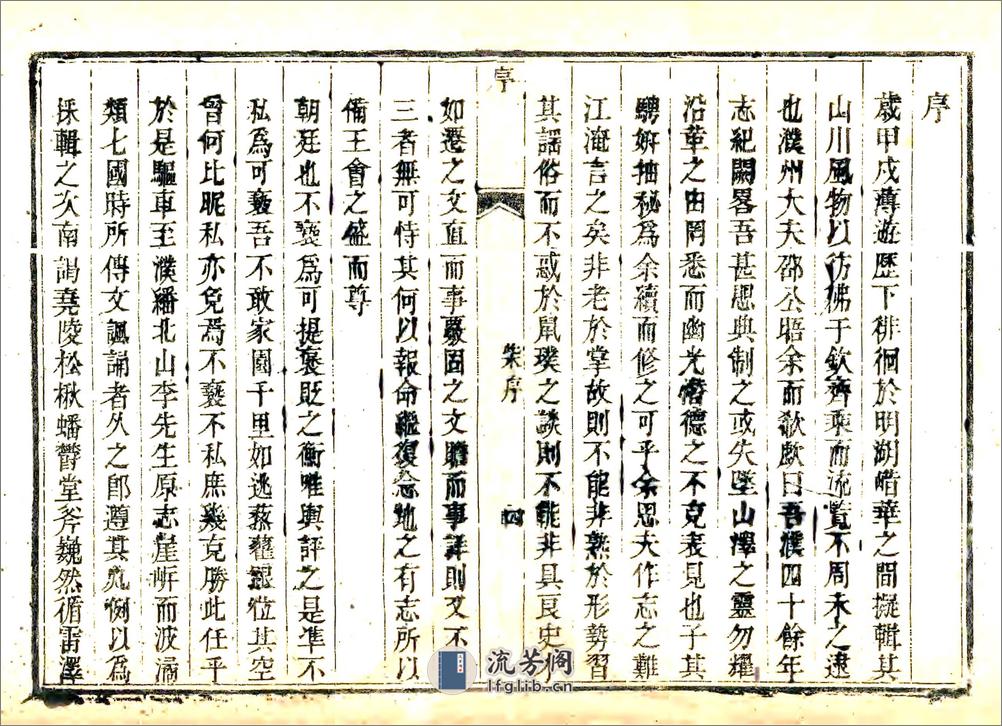 序
歲甲戍薄遊歷下徘徊於明湖㟙華之間擬輯其
山川風物以彷彿于欽齊乘而流覽不周未之逮
也濮州大夫邵公晤余而欷歔曰吾濮四十餘年
志紀闕畧吾甚思典制之或失墜山澤之靈勿耀
沿革之由罔悉而幽光潛德之不克表見也子其
騁妍抽秘為余續而修之可乎余思夫作志之難
江淹言之矣非老於掌故則不能非熟於形勢習
其謡俗而不惑於鼠璞之談則不能非具良史才
序
朱序
四
如遷之文直而事覈固之文贍而事詳則又不
三者無可恃其何以報命繼復念地之有志所以
備王會之盛而尊
朝廷也不褻為可提褒貶之衡唯輿評之是凖不
私為可褻吾不敢家園千里如逃蓬藋踉位其空
曾何比昵私亦免焉不褻不私庶幾克勝此任乎
於是驅車至濮繙北山李先生原志崖岸而波濤
類七國時所傳文諷誦者久之郎遵其凡例以為
採輯之次南謁堯陵松楸蟠欝堂斧巍然循雷澤
流芳阁
lfglib.cn